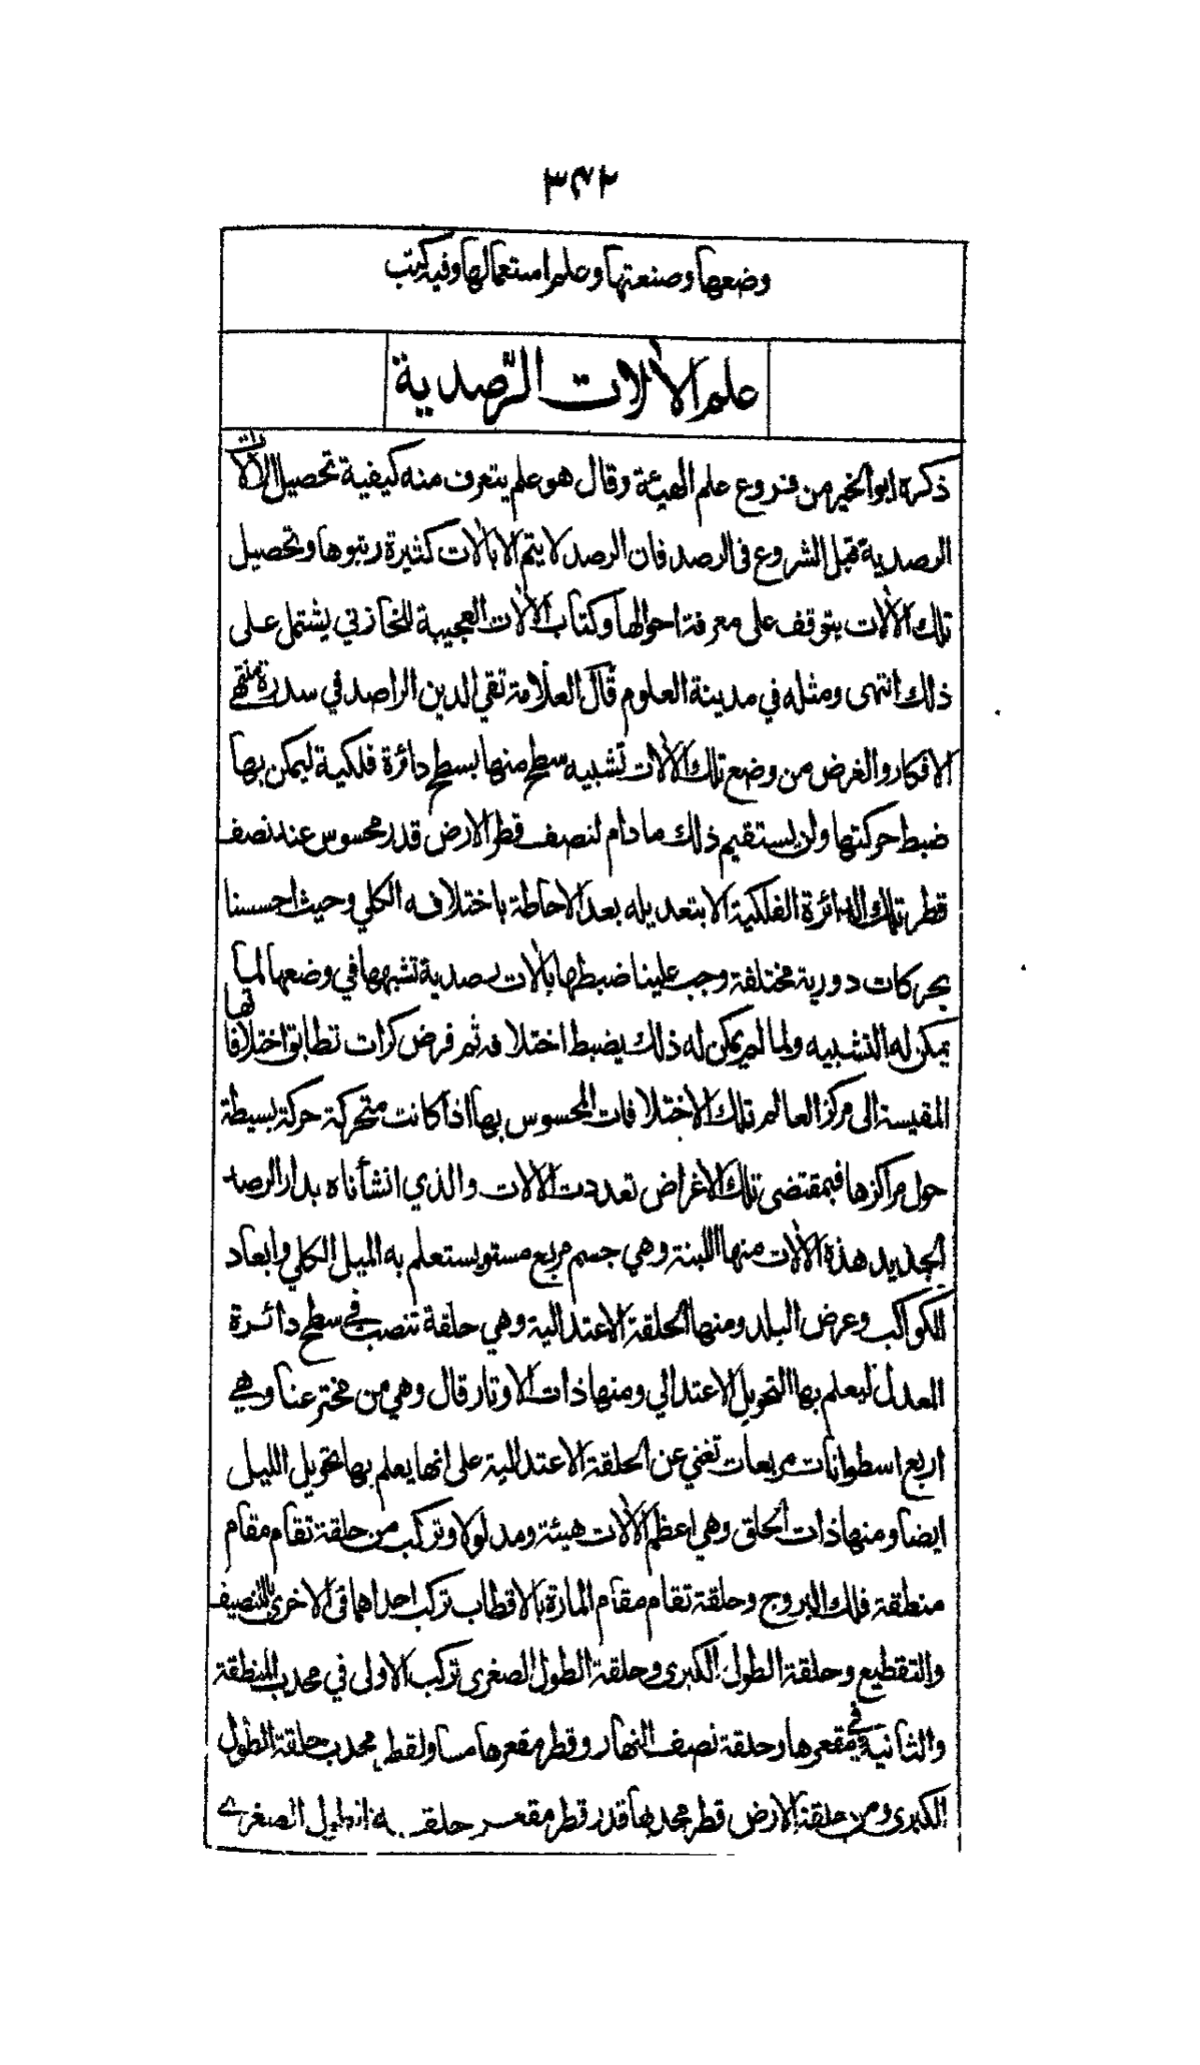 ٣٤٢
وضعها وصنعتها وعلم استعمالها وفيه كتب
علم الآلات الرّصدية
ذكره ابو الخير من فروع علم الهيئة وقال هو علم يتعرف منه كيفية تحصيل الآلات
الرصدية قبل الشروع فى الرصد فان الرصد لا يتم الا بآلات كثيرة رتبوها وتحصيل
تلك الآلات يتوقف على معرفة احوالها وكتاب الآلات العجيبة للخازني يشتمل على
ذلك انتهى ومثله في مدينة العلوم قال العلامة تقي الدين الراصد في سدرة منتهى
الافكار والغرض من وضع تلك الآلات تشبيه سطح منها بسطح دائرة فلكية ليمكن بها
ضبط حركتها ولن يستقيم ذلك ما دام لنصف قطر الارض قدر محسوس عند نصف
قطر تلك الدائرة الفلكية الا بتعديله بعد الاحاطة باختلافه الكلي وحيث احسسنا
بحركات دورية مختلفة وجب علينا ضبطها بآلات رصدية تشبهها في وضعها لما
يمكن له التشبيه ولما لم يمكن له ذلك بضبط اختلافه ثم فرض كرات تطابق اختلافاتها
المقيسة الى مركز العالم تلك الاختلافات المحسوس بها اذا كانت متحركة حركة بسيطة
حول مراكزها فبمقتضى تلك الاغراض تعددت الآلات والذي انشأناه بدار الرصد
الجديد هذه الآلات منها اللبنة وهي جسم مربع مستو يستعلم به الميل الكلي وابعاد
الكواكب وعرض البلد ومنها الحلقة الاعتدالية وهي حلقة تنصب في سطح دائرة
المعدل ليعلم بها التحويل الاعتدالي ومنها ذات الاوتار قال وهي من مخترعنا وهي
اربع اسطوانات مربعات تغني عن الحلقة الاعتدالية على انها يعلم بها تحويل الليل
ايضا ومنها ذات الحلق وهي اعظم الآلات هيئة ومدلولا وتركب من حلقة تقام مقام
منطقة فلك البروج وحلقة تقام مقام المارة بالاقطاب تركب احداهما فى الاخرى بالتنصيف
والتقطيع وحلقة الطول الكبرى وحلقة الطول الصغرى تركب الاولى في محدب المنطقة
والثانية في مقعرها وحلقة نصف النهار وقطر مقعرها مساو لقطر محدب حلقة الطول
الكبرى ومن حلقة الارض قطر محدبها قدر قطر مقعر حلقة الطول الصغرى